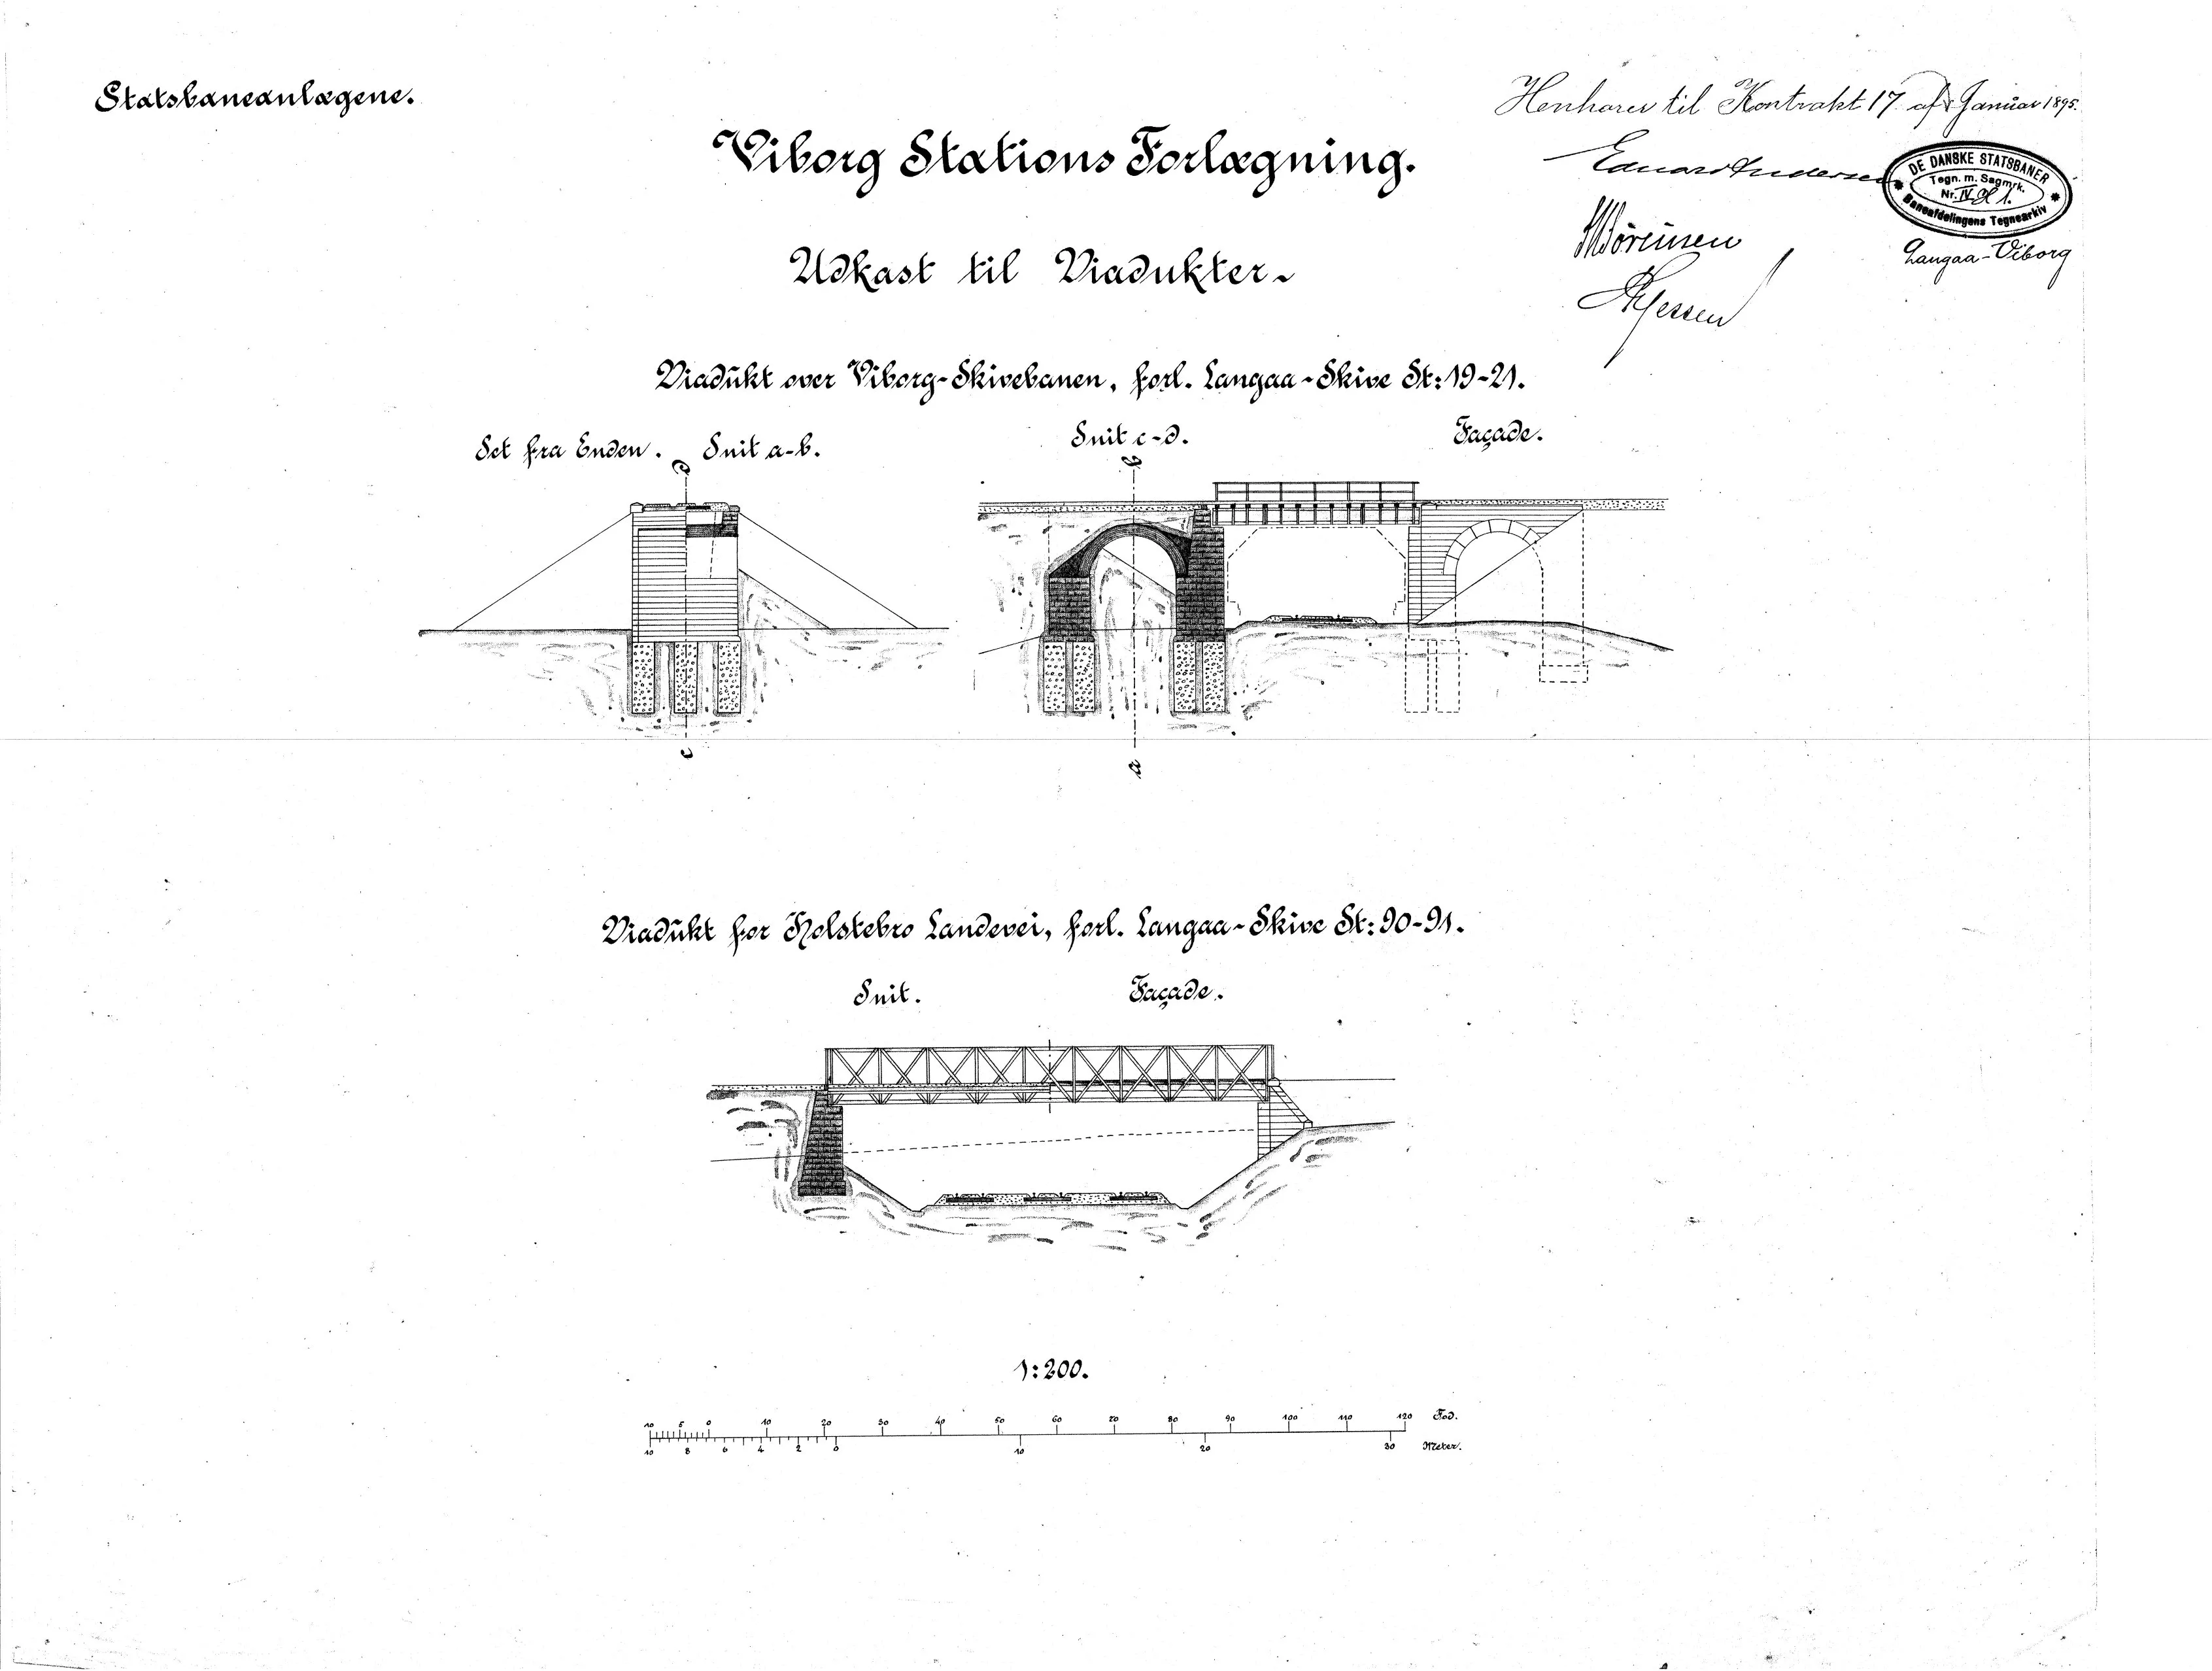 Statsbaneanlægene.
Henhører til Kontrakt 17 af Januar 1895.
Viborg Stations Forlægning.
Eduard Andersen
DE DANSKE STATSBANER
Tegn. m. Sagmrk.
Nr. IV
Baneafdelingens Tegnearkiv
Sørensen
Langaa-Viborg
Udkast til Viadukter
Jessen
Viadukt over Viborg-Skivebanen, forl. Langaa-Skive St: 19-21.
Set fra Enden. Snit a-b.
Snit c-d.
Façade.
d
b
c
a
Viadukt for Holstebro Landevei, forl. Langaa-Skive St: 90-91.
Snit.
Façade.
1:200.
10 5 0 10 20 30 40 50 60 70 80 90 100 110 120 Fod.
10 8 6 4 2 0 10 20 30 Meter.